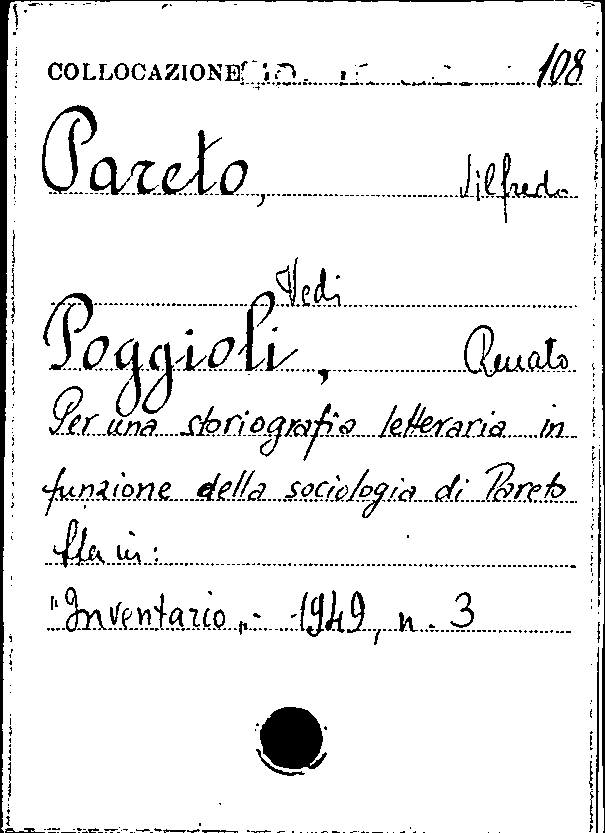 COLLOCAZIONE 108
Pareto, Vilfredo
Vedi
Poggioli, Renato
Per una storiografia letteraria in
funzione della sociologia di Pareto
Sta in:
"Inventario„ - 1949, n. 3